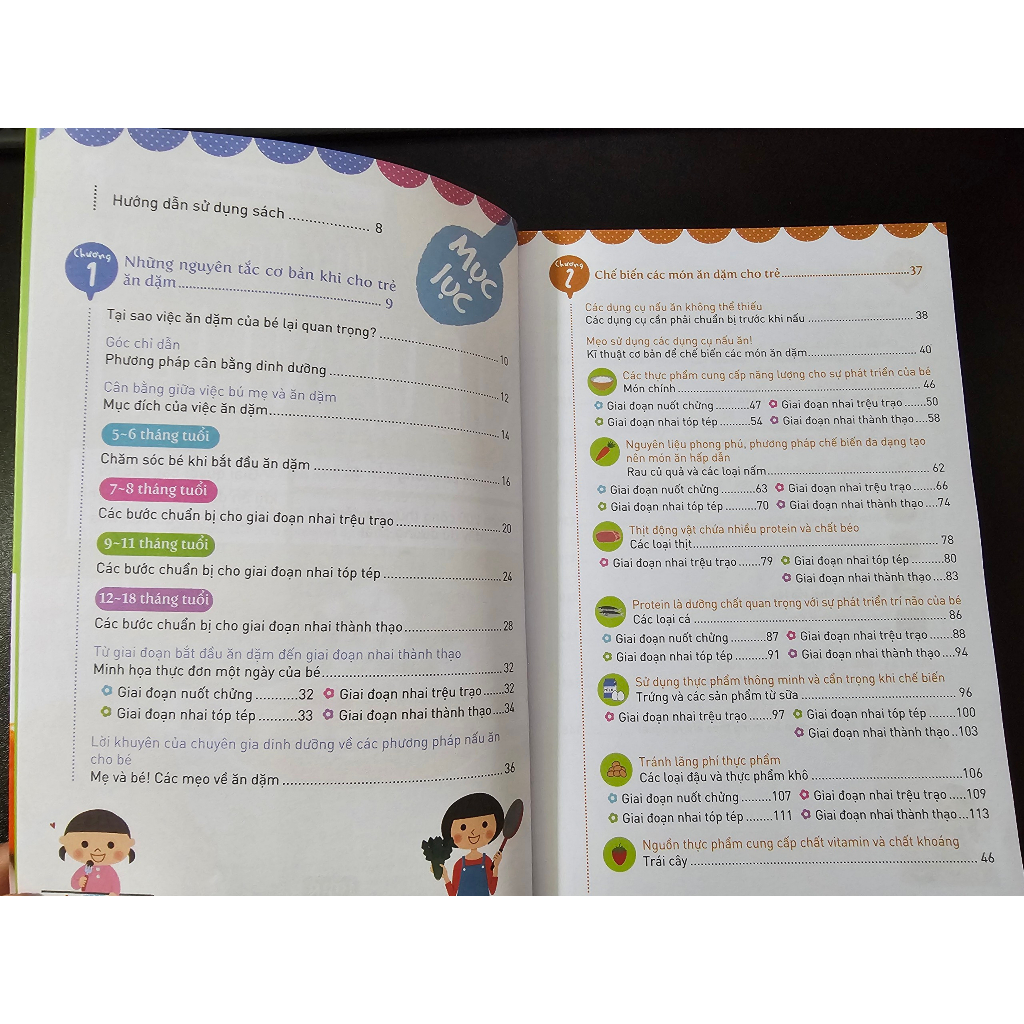 Mục lục
Hướng dẫn sử dụng sách .................... 8
Chương 1
Những nguyên tắc cơ bản khi cho trẻ
ăn dặm .................... 9
Tại sao việc ăn dặm của bé lại quan trọng? .................... 10
Góc chỉ dẫn
Phương pháp cân bằng dinh dưỡng .................... 12
Cân bằng giữa việc bú mẹ và ăn dặm
Mục đích của việc ăn dặm .................... 14
5~6 tháng tuổi
Chăm sóc bé khi bắt đầu ăn dặm .................... 16
7~8 tháng tuổi
Các bước chuẩn bị cho giai đoạn nhai trệu trạo .................... 20
9~11 tháng tuổi
Các bước chuẩn bị cho giai đoạn nhai tóp tép .................... 24
12~18 tháng tuổi
Các bước chuẩn bị cho giai đoạn nhai thành thạo .................... 28
Từ giai đoạn bắt đầu ăn dặm đến giai đoạn nhai thành thạo
Minh họa thực đơn một ngày của bé .................... 32
Giai đoạn nuốt chửng ..........32 Giai đoạn nhai trệu trạo ......32
Giai đoạn nhai tóp tép ..........33 Giai đoạn nhai thành thạo ....34
Lời khuyên của chuyên gia dinh dưỡng về các phương pháp nấu ăn
cho bé
Mẹ và bé! Các mẹo về ăn dặm .................... 36
Chương 2
Chế biến các món ăn dặm cho trẻ .................... 37
Các dụng cụ nấu ăn không thể thiếu
Các dụng cụ cần phải chuẩn bị trước khi nấu .................... 38
Mẹo sử dụng các dụng cụ nấu ăn!
Kĩ thuật cơ bản để chế biến các món ăn dặm .................... 40
Các thực phẩm cung cấp năng lượng cho sự phát triển của bé
Món chính .................... 46
Giai đoạn nuốt chửng ..........47 Giai đoạn nhai trệu trạo ......50
Giai đoạn nhai tóp tép ..........54 Giai đoạn nhai thành thạo ...58
Nguyên liệu phong phú, phương pháp chế biến đa dạng tạo
nên món ăn hấp dẫn
Rau củ quả và các loại nấm .................... 62
Giai đoạn nuốt chửng ..........63 Giai đoạn nhai trệu trạo ......66
Giai đoạn nhai tóp tép ..........70 Giai đoạn nhai thành thạo ...74
Thịt động vật chứa nhiều protein và chất béo
Các loại thịt .................... 78
Giai đoạn nhai trệu trạo ......79 Giai đoạn nhai tóp tép ........80
Giai đoạn nhai thành thạo ....83
Protein là dưỡng chất quan trọng với sự phát triển trí não của bé
Các loại cá .................... 86
Giai đoạn nuốt chửng ..........87 Giai đoạn nhai trệu trạo ......88
Giai đoạn nhai tóp tép ..........91 Giai đoạn nhai thành thạo ....94
Sử dụng thực phẩm thông minh và cẩn trọng khi chế biến
Trứng và các sản phẩm từ sữa .................... 96
Giai đoạn nhai trệu trạo ......97 Giai đoạn nhai tóp tép ........100
Giai đoạn nhai thành thạo ..103
Tránh lãng phí thực phẩm
Các loại đậu và thực phẩm khô .................... 106
Giai đoạn nuốt chửng ........107 Giai đoạn nhai trệu trạo .....109
Giai đoạn nhai tóp tép ........111 Giai đoạn nhai thành thạo ...113
Nguồn thực phẩm cung cấp chất vitamin và chất khoáng
Trái cây .................... 46